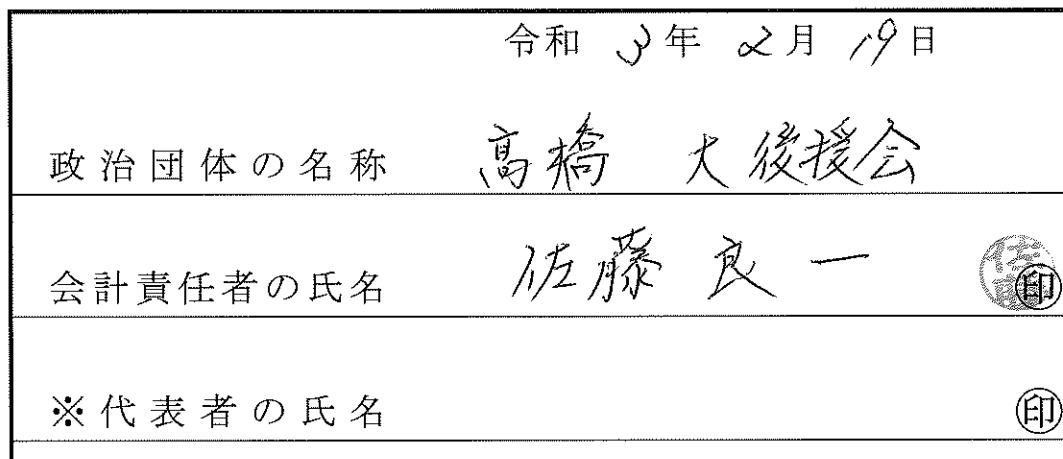 令和 3年 2月 19日
政治団体の名称 髙橋 大後援会
会計責任者の氏名 佐藤良一 佐藤 ㊞
※代表者の氏名 ㊞